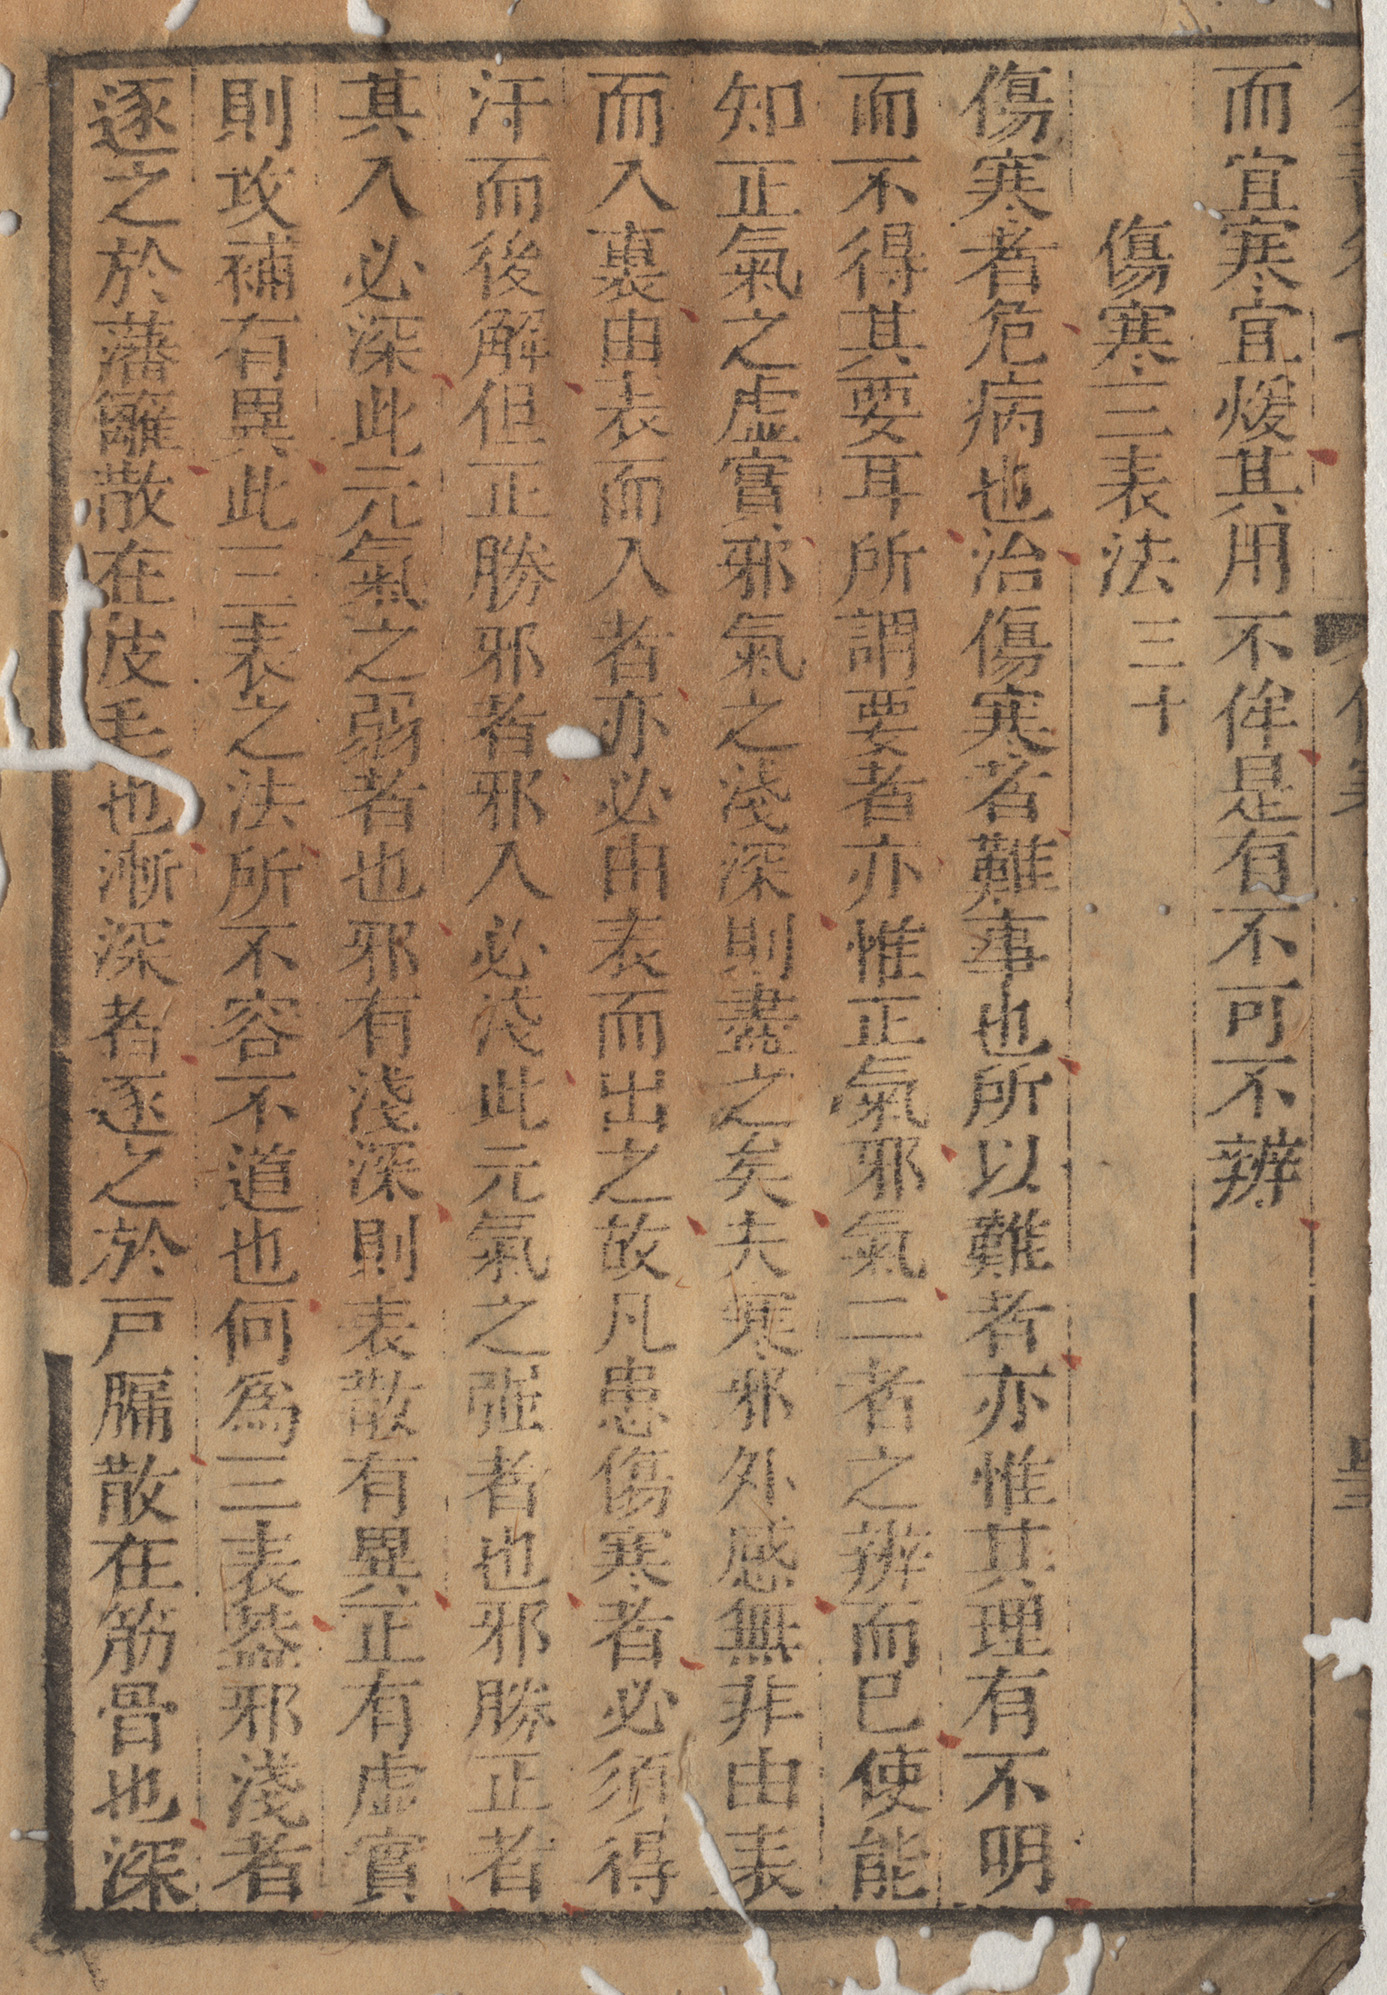 而宜寒宜煖其用不侔是有不可不辨
傷寒三表法 三十
傷寒者危病也治傷寒者難事也所以難者亦惟其理有不明
而不得其要耳所謂要者亦惟正氣邪氣二者之辨而已使能
知正氣之虛實邪氣之淺深則盡之矣夫寒邪外感無非由表
而入裏由表而入者亦必由表而出之故凡患傷寒者必須得
汗而後解但正勝邪者邪入必淺此元氣之強者也邪勝正者
其入必深此元氣之弱者也邪有淺深則表散有異正有虛實
則攻補有異此三表之法所不容不道也何為三表葢邪淺者
逐之於藩籬散在皮毛也漸深者逐之於戶牖散在筋骨也深